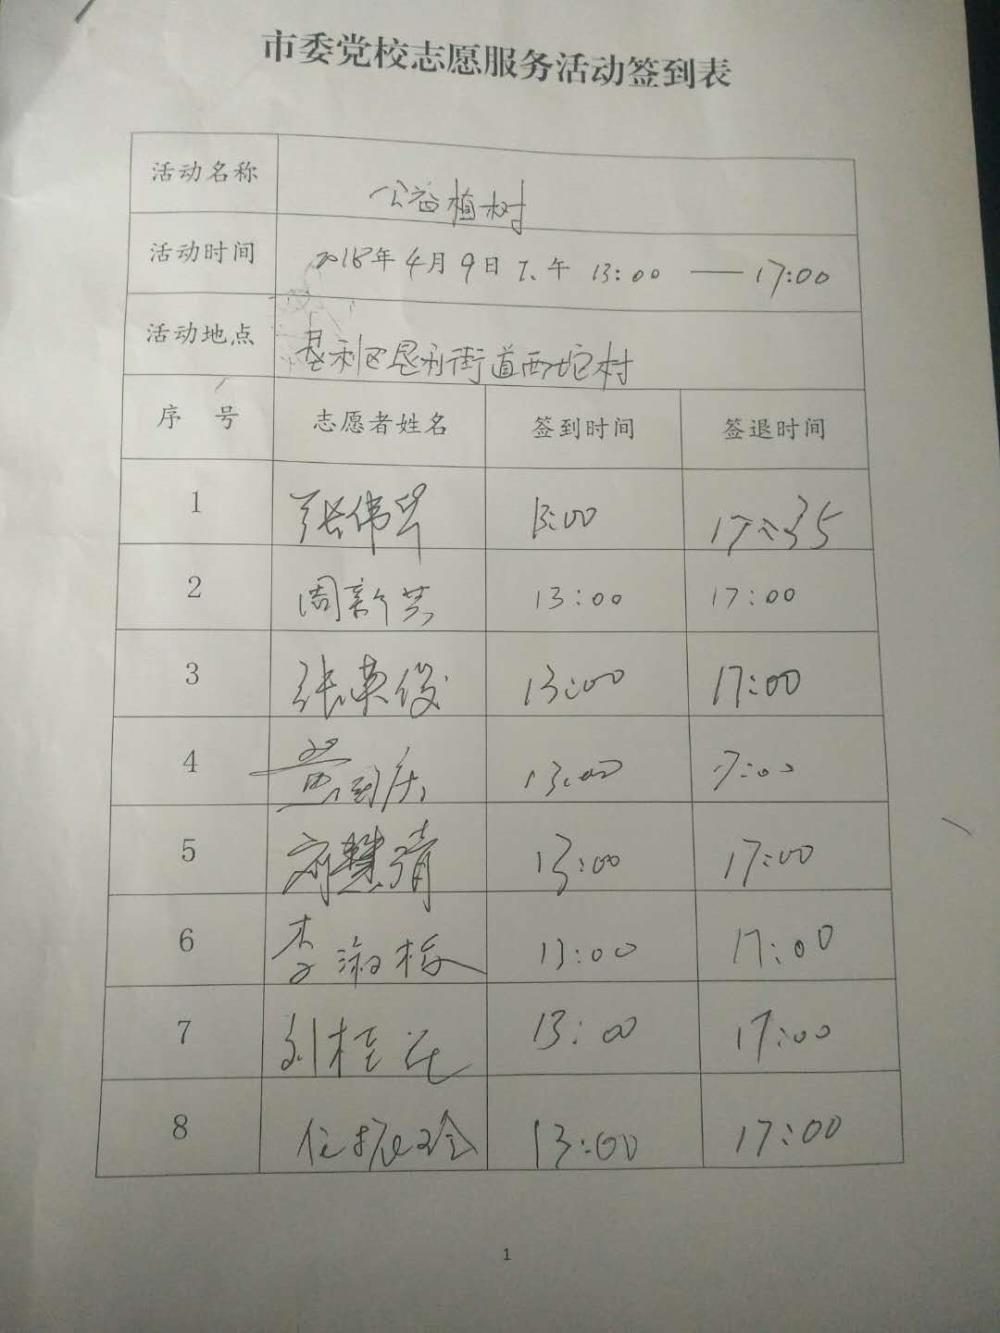 市委党校志愿服务活动签到表
活动名称 公益植树
活动时间 2018年4月9日下午 13:00 —— 17:00
活动地点 垦利区垦利街道西坨村
序号 志愿者姓名 签到时间 签退时间
1 张伟 13:00 17:35
2 周新 13:00 17:00
3 张英俊 13:00 17:00
4 黄国庆 13:00 17:00
5 刘慧倩 13:00 17:00
6 李淑梅 13:00 17:00
7 刘桂花 13:00 17:00
8 任振玲 13:00 17:00
1